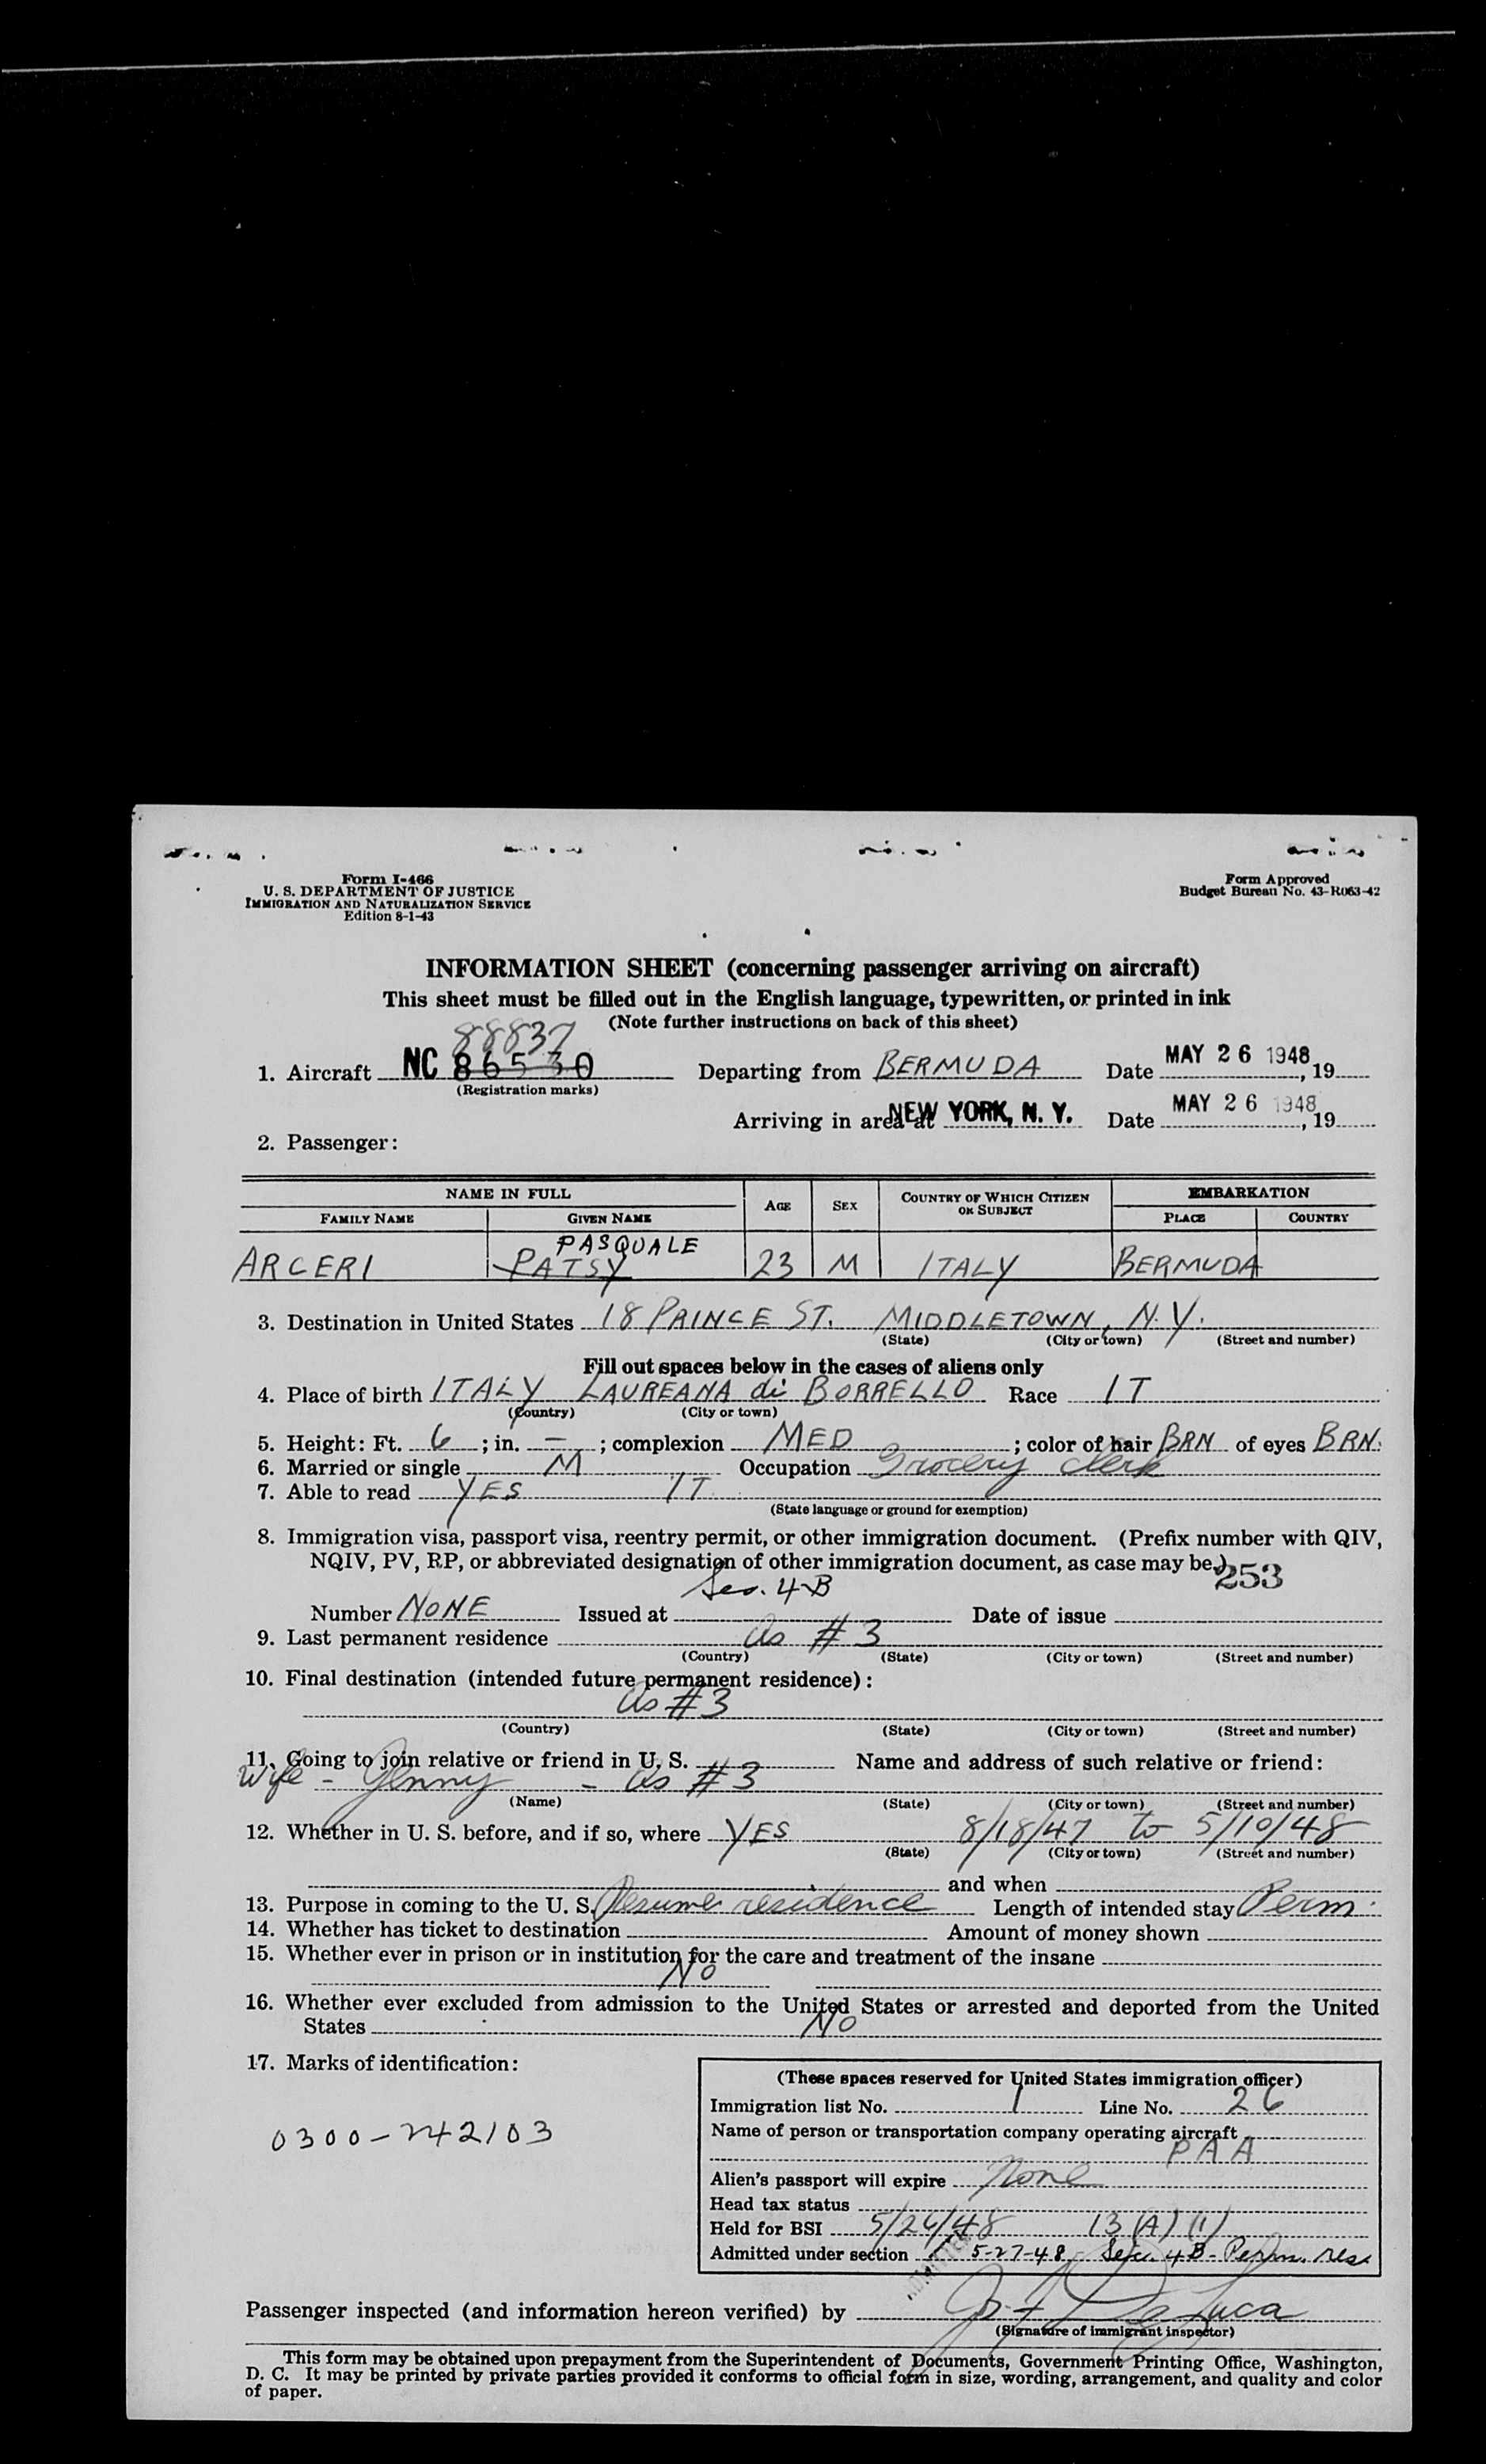 Form I-466
U. S. DEPARTMENT OF JUSTICE
IMMIGRATION AND NATURALIZATION SERVICE
Edition 8-1-43
Form Approved
Budget Bureau No. 43-R063-42
INFORMATION SHEET (concerning passenger arriving on aircraft)
This sheet must be filled out in the English language, typewritten, or printed in ink
(Note further instructions on back of this sheet)
88837
1. Aircraft NC 86530 Departing from BERMUDA Date MAY 26 1948, 19
(Registration marks)
Arriving in area at NEW YORK, N. Y. Date MAY 26 1948, 19
2. Passenger:
NAME IN FULL AGE SEX COUNTRY OF WHICH CITIZEN OR SUBJECT EMBARKATION
FAMILY NAME GIVEN NAME PLACE COUNTRY
PASQUALE
ARCERI PATSY 23 M ITALY BERMUDA
3. Destination in United States 18 PRINCE ST. MIDDLETOWN, N.Y.
(State) (City or town) (Street and number)
Fill out spaces below in the cases of aliens only
4. Place of birth ITALY LAUREANA di BORRELLO Race IT
(Country) (City or town)
5. Height: Ft. 6 ; in. — ; complexion MED ; color of hair BRN of eyes BRN.
6. Married or single M Occupation Grocery Clerk
7. Able to read YES IT
(State language or ground for exemption)
8. Immigration visa, passport visa, reentry permit, or other immigration document. (Prefix number with QIV,
NQIV, PV, RP, or abbreviated designation of other immigration document, as case may be.) 253
Sec. 4-B
Number NONE Issued at Date of issue
9. Last permanent residence as #3
(Country) (State) (City or town) (Street and number)
10. Final destination (intended future permanent residence):
as #3
(Country) (State) (City or town) (Street and number)
11. Going to join relative or friend in U. S. Name and address of such relative or friend:
Wife - Jenny - as #3
(Name) (State) (City or town) (Street and number)
12. Whether in U. S. before, and if so, where YES 8/18/47 to 5/10/48
(State) (City or town) (Street and number)
and when
13. Purpose in coming to the U. S. Resume residence Length of intended stay Perm.
14. Whether has ticket to destination Amount of money shown
15. Whether ever in prison or in institution for the care and treatment of the insane
NO
16. Whether ever excluded from admission to the United States or arrested and deported from the United
States NO
17. Marks of identification:
0300-242103
(These spaces reserved for United States immigration officer)
Immigration list No. 1 Line No. 26
Name of person or transportation company operating aircraft
PAA
Alien's passport will expire None
Head tax status
Held for BSI 5/26/48 13 (A) (1)
Admitted under section 5-27-48 Sec. 4B - Perm. res.
Passenger inspected (and information hereon verified) by
(Signature of immigrant inspector)
This form may be obtained upon prepayment from the Superintendent of Documents, Government Printing Office, Washington,
D. C. It may be printed by private parties provided it conforms to official form in size, wording, arrangement, and quality and color
of paper.